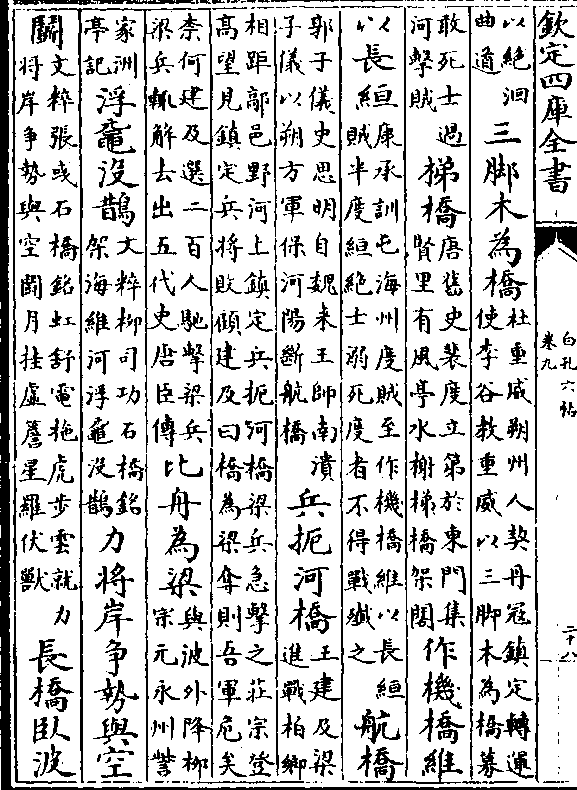 欽定四庫全書
白孔六帖
卷九
二十八
以絶洄
曲遒
三脚木為橋
杜重威朔州人契丹冦鎮定轉運
使李谷教重威以三脚木為橋募
敢死士過
河擊賊
梯橋
唐舊史裴度立第於東門集
賢里有風亭水榭梯橋架閣
作機橋維
以長絙
康承訓屯海州度賊至作機橋維以長絙
賊半度絙絶士溺死度者不得戰殱之
航橋
郭子儀史思明自魏来王師南潰
子儀以朔方軍保河陽斷航橋
兵扼河橋
王建及梁
進戰柏鄉
相距鄗邑野河上鎮定兵扼河橋梁兵急擊之莊宗登
高望見鎮定兵將敗顧建及曰橋為梁奪則吾軍危矣
柰何建及選二百人馳擊梁兵
梁兵輒解去出五代史唐臣傳
比舟為梁
與波外降柳
宗元永州嘗
家洲
亭記
浮黿没鵲
文粹柳司功石橋銘
架海維河浮黿没鵲
力將岸争勢與空
鬬
文粹張彧石橋銘虹舒電拖虎步雲就力
將岸争勢與空鬬月挂虚簷星羅伏獸
長橋卧波